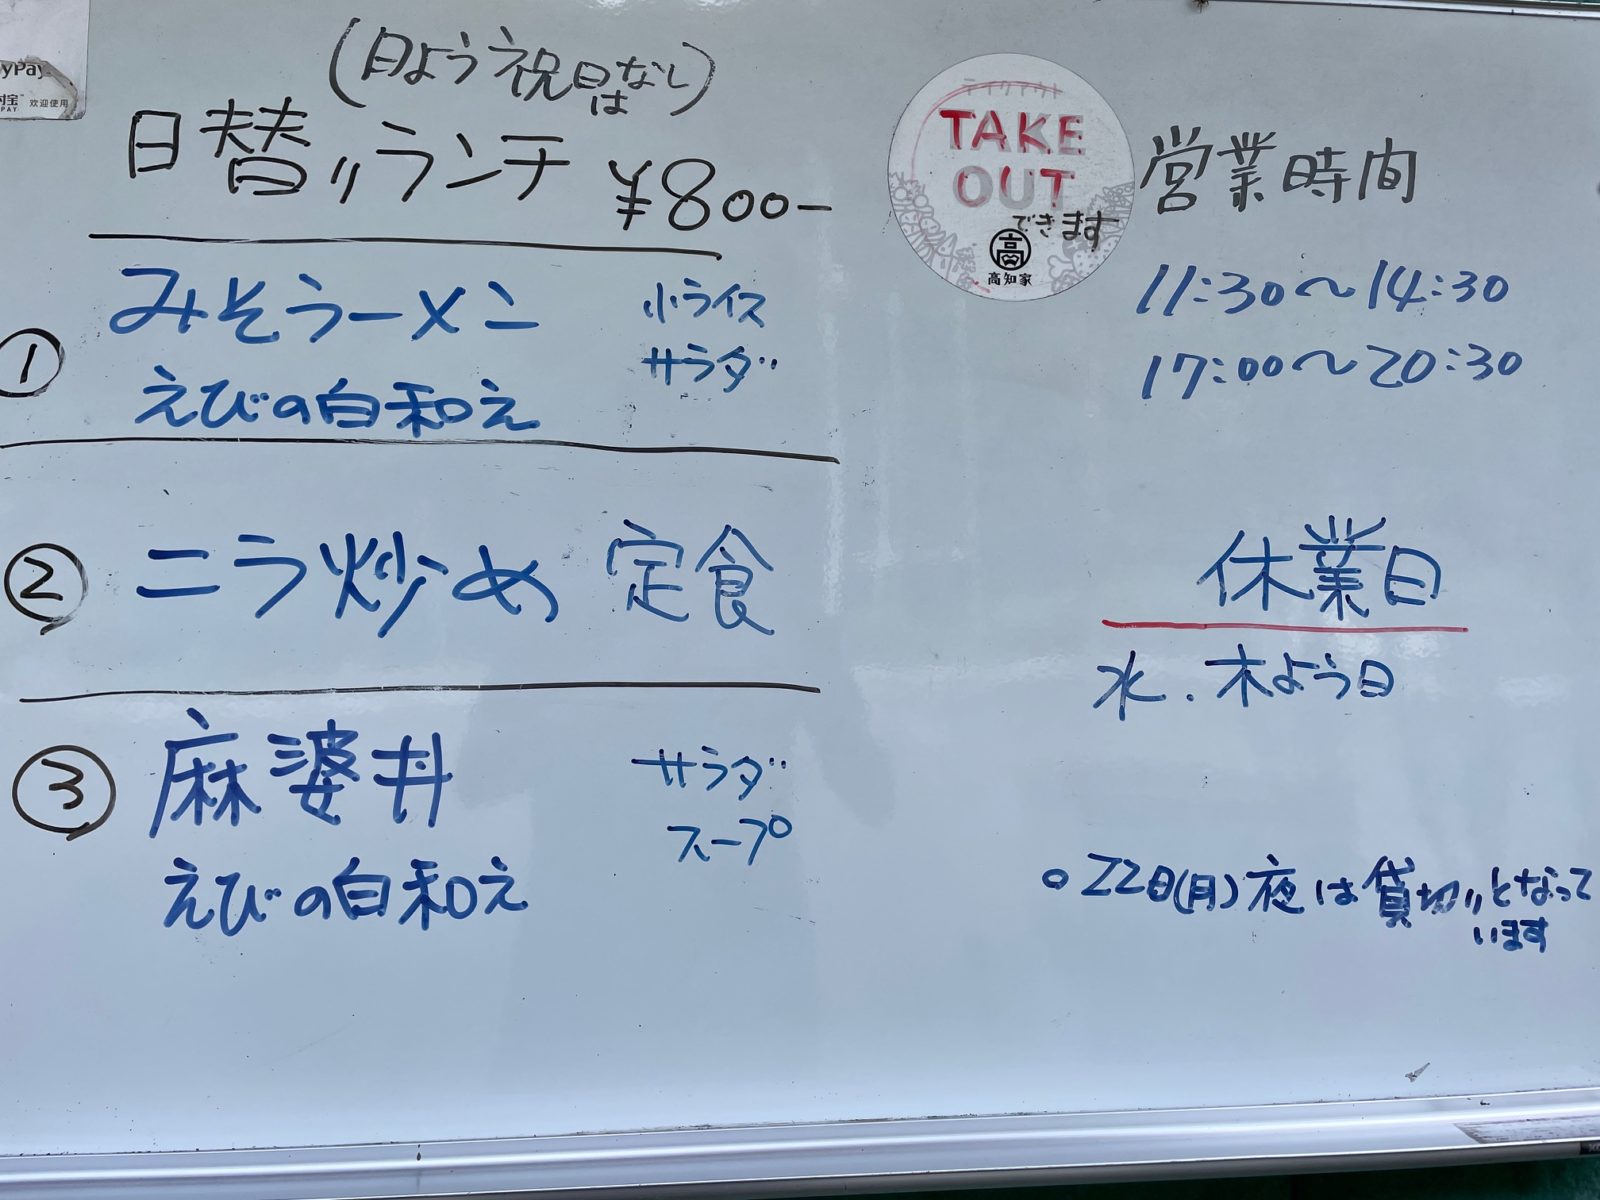 yPay
付宝
PAY 欢迎使用
(日よう祝日はなし)
日替りランチ ¥800-
① みそラーメン 小ライス
サラダ
えびの白和え
② ニラ炒め 定食
③ 麻婆丼 サラダ
スープ
えびの白和え
テイクアウト
TAKE
OUT
できます
高
高知家
営業時間
11:30〜14:30
17:00〜20:30
休業日
水.木よう日
○22日(月)夜は貸切りとなって
います